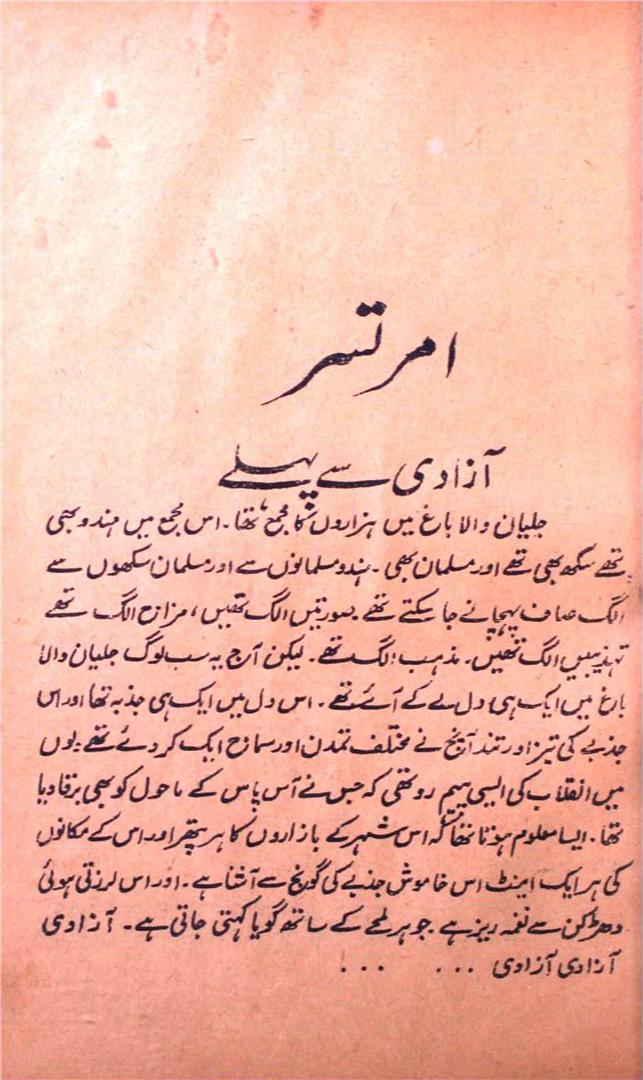 امرتسر
آزادی سے پہلے
جلیان والا باغ میں ہزاروں کا مجمع تھا۔ اس مجمع میں ہندو بھی
تھے سکھ بھی تھے اور مسلمان بھی۔ ہندو مسلمانوں سے اور مسلمان سکھوں سے
الگ صاف پہچانے جا سکتے تھے۔ صورتیں الگ تھیں، مزاج الگ تھے
تہذیبیں الگ تھیں۔ مذہب الگ تھے۔ لیکن آج یہ سب لوگ جلیان والا
باغ میں ایک ہی دل لے کے آئے تھے۔ اس دل میں ایک ہی جذبہ تھا اور اس
جذبے کی تیز اور تند آنچ نے مختلف تمدن اور سماج ایک کر دئے تھے۔ دلوں
میں انقلاب کی ایسی پیہم رو تھی کہ جس نے آس پاس کے ماحول کو بھی برقا دیا
تھا۔ ایسا معلوم ہوتا تھا کہ اس شہر کے بازاروں کا ہر پتھر اور اس کے مکانوں
کی ہر ایک اینٹ اس خاموش جذبے کی گونج سے آشنا ہے۔ اور اس لرزتی ہوئی
دھڑکن سے نغمہ ریز ہے۔ جو ہر لمحے کے ساتھ گویا کہتی جاتی ہے۔ آزادی
آزادی آزادی ... ...